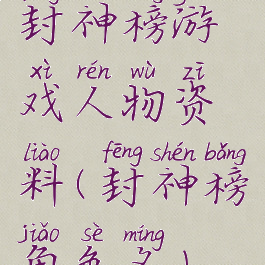 封神榜游
xì rén wù zī
戏人物资
liào fēng shén bǎng
料(封神榜
jiǎo sè míng
角色名)